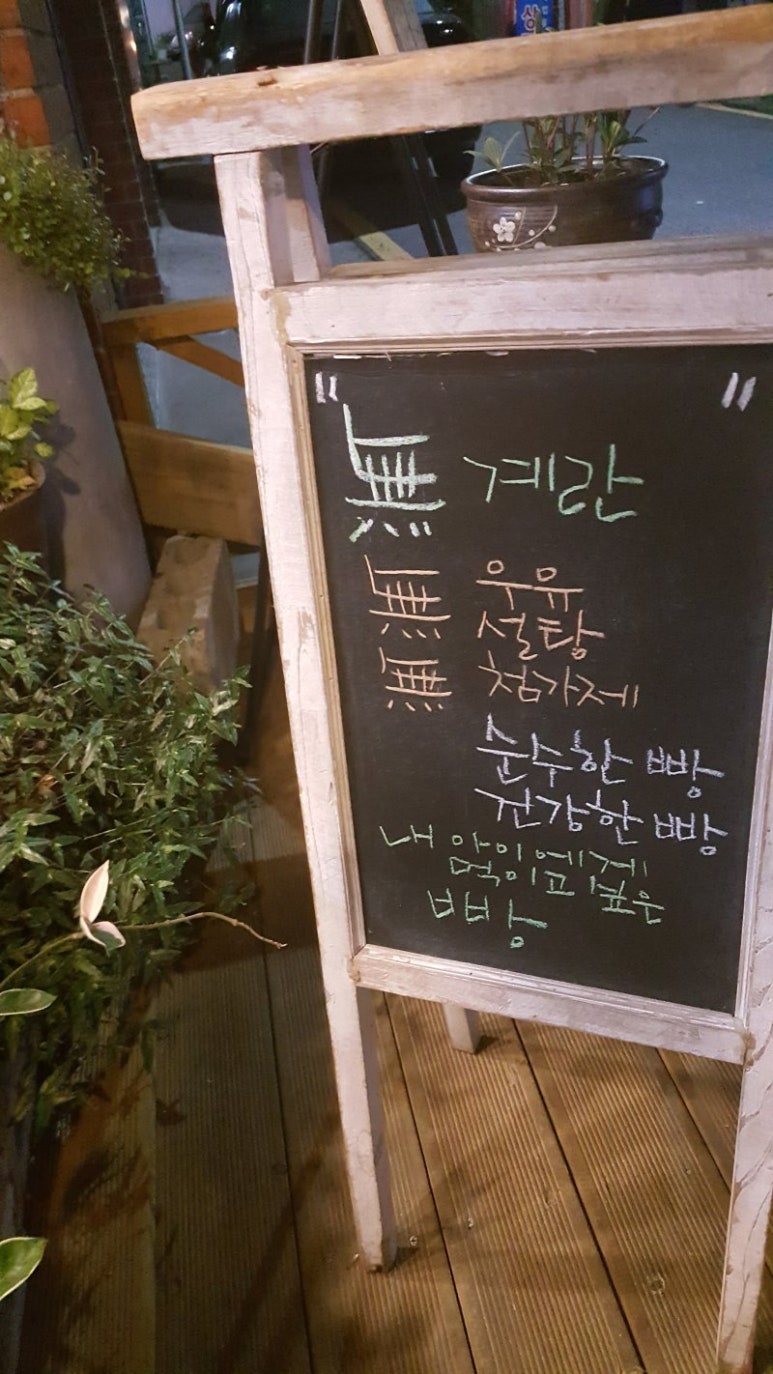 상
" "
無 계란
無 우유
설탕
無 첨가제
순수한 빵
건강한 빵
내 아이에게
먹이고 싶은
빵